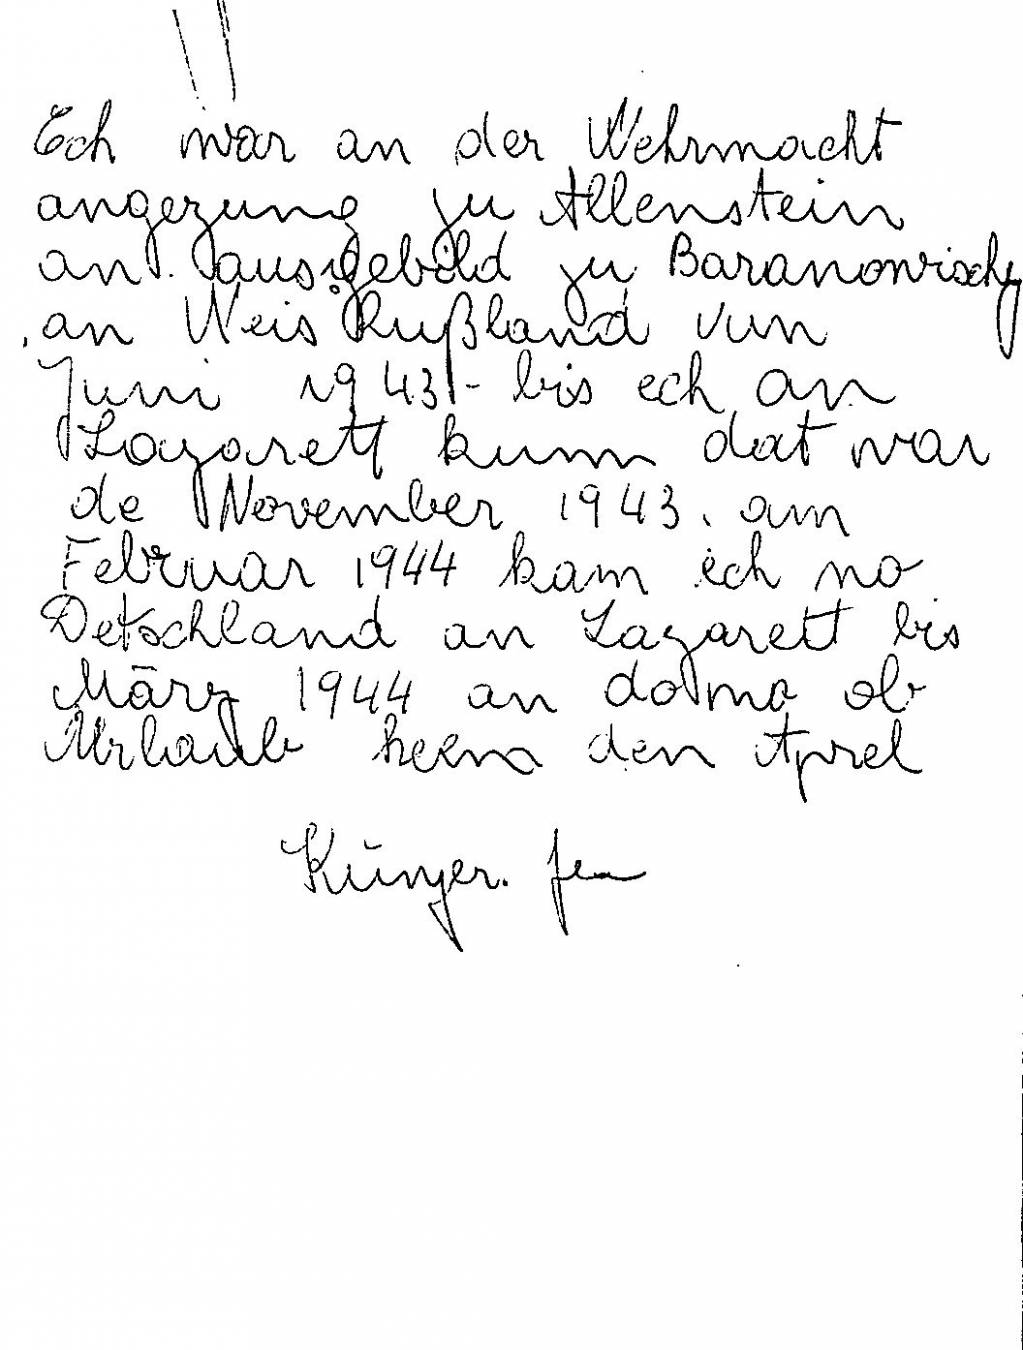 Ech war an der Wehrmacht
angezung zu Allenstein
an ausgebild zu Baranowischy
an Weis Rußland vun
Juni 1943 - bis ech an
Lazarett kumm dat war
de November 1943. am
Februar 1944 kam ech no
Detschland an Lazarett bis
März 1944 an do no ob
Urlaub heem den Aprel
Künger.